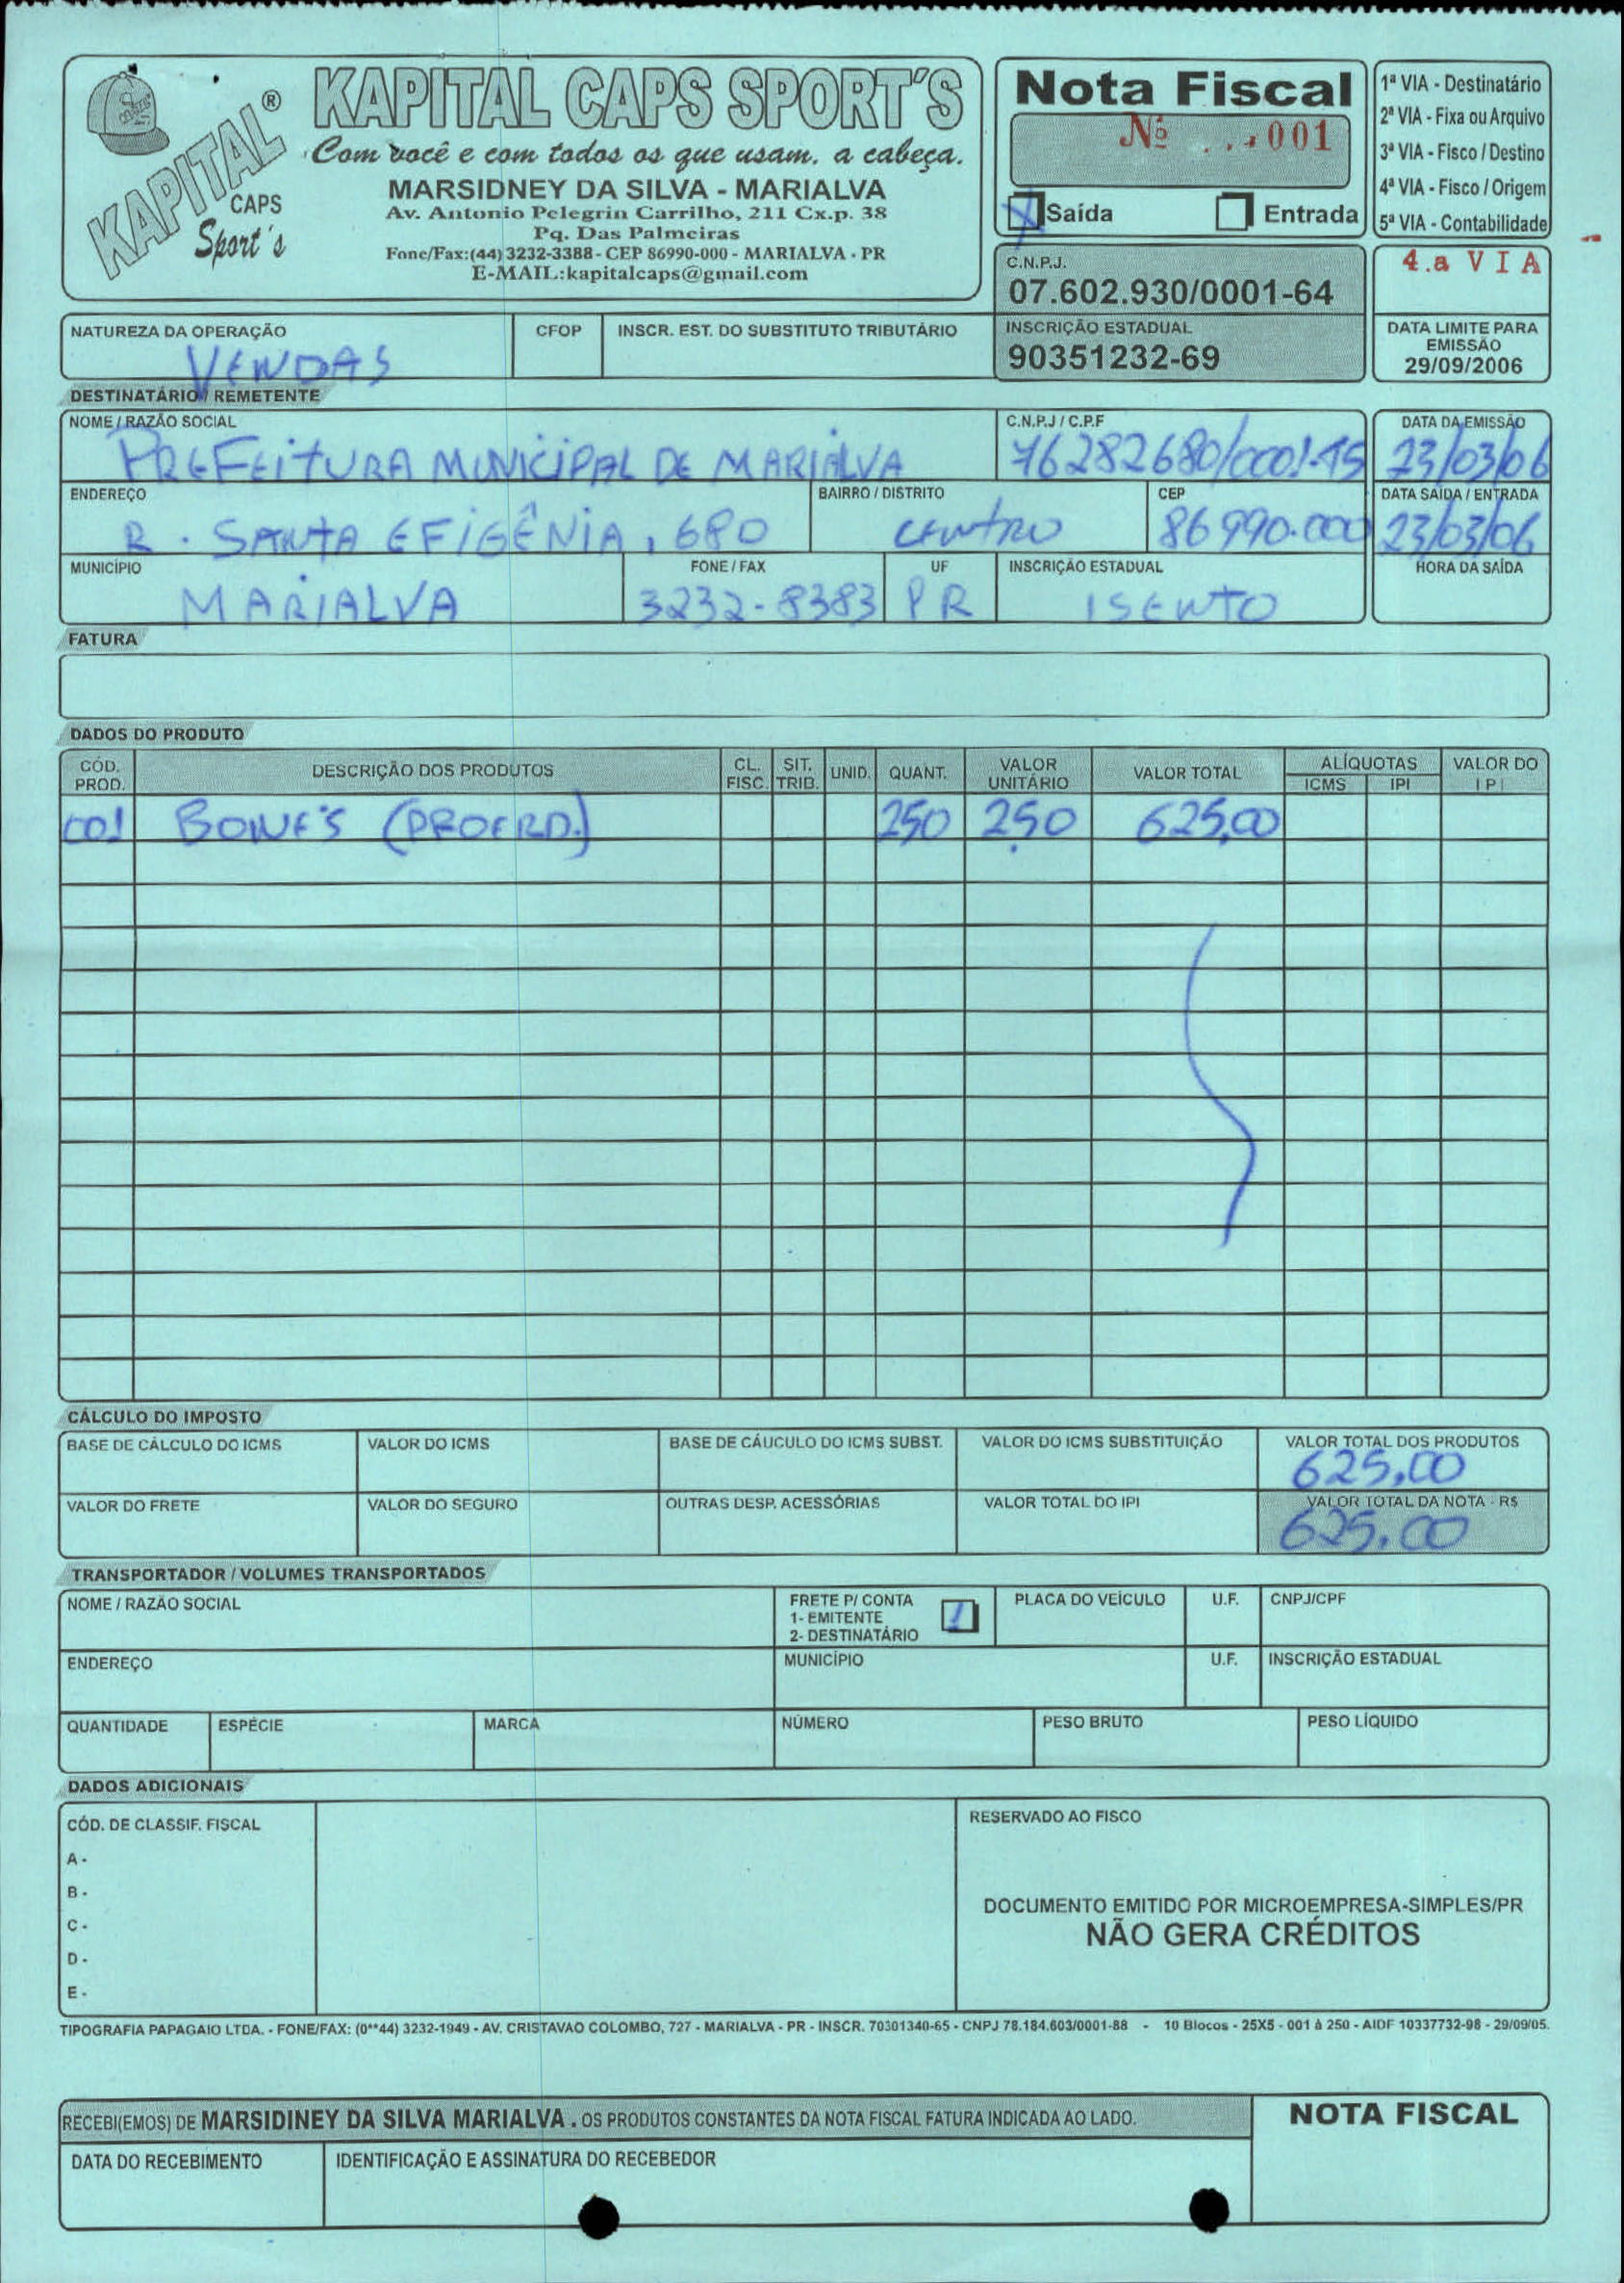 KAPITAL®
CAPS
Sport´s
KAPITAL CAPS SPORT´S
Com você e com todos os que usam. a cabeça.
MARSIDNEY DA SILVA - MARIALVA
Av. Antonio Pelegrin Carrilho, 211 Cx.p. 38
Pq. Das Palmeiras
Fone/Fax:(44) 3232-3388 - CEP 86990-000 - MARIALVA - PR
E-MAIL:kapitalcaps@gmail.com
Nota Fiscal
Nº ...001
X Saída Entrada
1ª VIA - Destinatário
2ª VIA - Fixa ou Arquivo
3ª VIA - Fisco / Destino
4ª VIA - Fisco / Origem
5ª VIA - Contabilidade
C.N.P.J.
07.602.930/0001-64
4.a VIA
NATUREZA DA OPERAÇÃO CFOP INSCR. EST. DO SUBSTITUTO TRIBUTÁRIO
VENDAS
INSCRIÇÃO ESTADUAL
90351232-69
DATA LIMITE PARA
EMISSÃO
29/09/2006
DESTINATÁRIO / REMETENTE
NOME / RAZÃO SOCIAL C.N.P.J / C.P.F DATA DA EMISSÃO
PREFEITURA MUNICIPAL DE MARIALVA 76282680/0001-45 23/03/06
ENDEREÇO BAIRRO / DISTRITO CEP DATA SAÍDA / ENTRADA
R. SANTA EFIGÊNIA, 680 CENTRO 86990.000 23/03/06
MUNICÍPIO FONE / FAX UF INSCRIÇÃO ESTADUAL HORA DA SAÍDA
MARIALVA 3232-8383 PR ISENTO
FATURA
DADOS DO PRODUTO
CÓD. PROD. DESCRIÇÃO DOS PRODUTOS CL. FISC. SIT. TRIB. UNID. QUANT. VALOR UNITÁRIO VALOR TOTAL ALÍQUOTAS ICMS IPI VALOR DO IPI
001 BONE'S (PROERD.) 250 2.50 625,00
CÁLCULO DO IMPOSTO
BASE DE CÁLCULO DO ICMS VALOR DO ICMS BASE DE CÁUCULO DO ICMS SUBST. VALOR DO ICMS SUBSTITUIÇÃO VALOR TOTAL DOS PRODUTOS
625,00
VALOR DO FRETE VALOR DO SEGURO OUTRAS DESP. ACESSÓRIAS VALOR TOTAL DO IPI VALOR TOTAL DA NOTA - R$
625,00
TRANSPORTADOR / VOLUMES TRANSPORTADOS
NOME / RAZÃO SOCIAL FRETE P/ CONTA PLACA DO VEÍCULO U.F. CNPJ/CPF
1- EMITENTE 1
2- DESTINATÁRIO
ENDEREÇO MUNICÍPIO U.F. INSCRIÇÃO ESTADUAL
QUANTIDADE ESPÉCIE MARCA NÚMERO PESO BRUTO PESO LÍQUIDO
DADOS ADICIONAIS
CÓD. DE CLASSIF. FISCAL RESERVADO AO FISCO
A -
B -
C -
D -
E -
DOCUMENTO EMITIDO POR MICROEMPRESA-SIMPLES/PR
NÃO GERA CRÉDITOS
TIPOGRAFIA PAPAGAIO LTDA. - FONE/FAX: (0**44) 3232-1949 - AV. CRISTAVAO COLOMBO, 727 - MARIALVA - PR - INSCR. 70301340-65 - CNPJ 78.184.603/0001-88 - 10 Blocos - 25X5 - 001 à 250 - AIDF 10337732-98 - 29/09/05.
RECEBI(EMOS) DE MARSIDINEY DA SILVA MARIALVA . OS PRODUTOS CONSTANTES DA NOTA FISCAL FATURA INDICADA AO LADO.
NOTA FISCAL
DATA DO RECEBIMENTO IDENTIFICAÇÃO E ASSINATURA DO RECEBEDOR